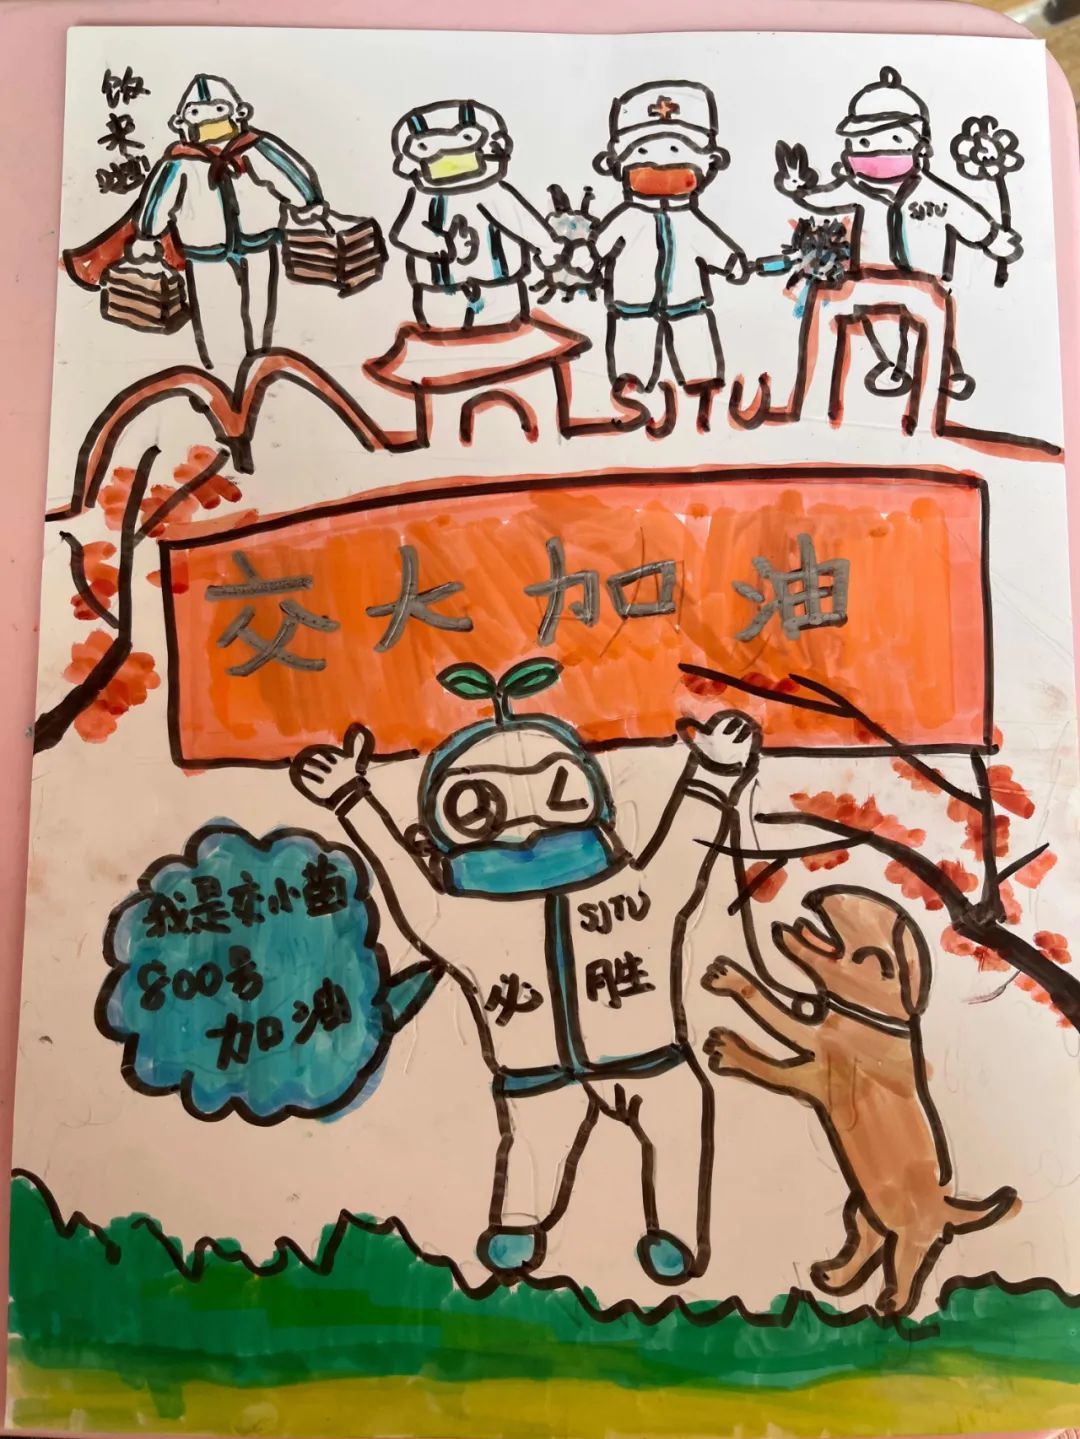 饭
来
啦
SJTU
SJTU
交大加油
SJTU
必胜
我是交小苗
800号
加油